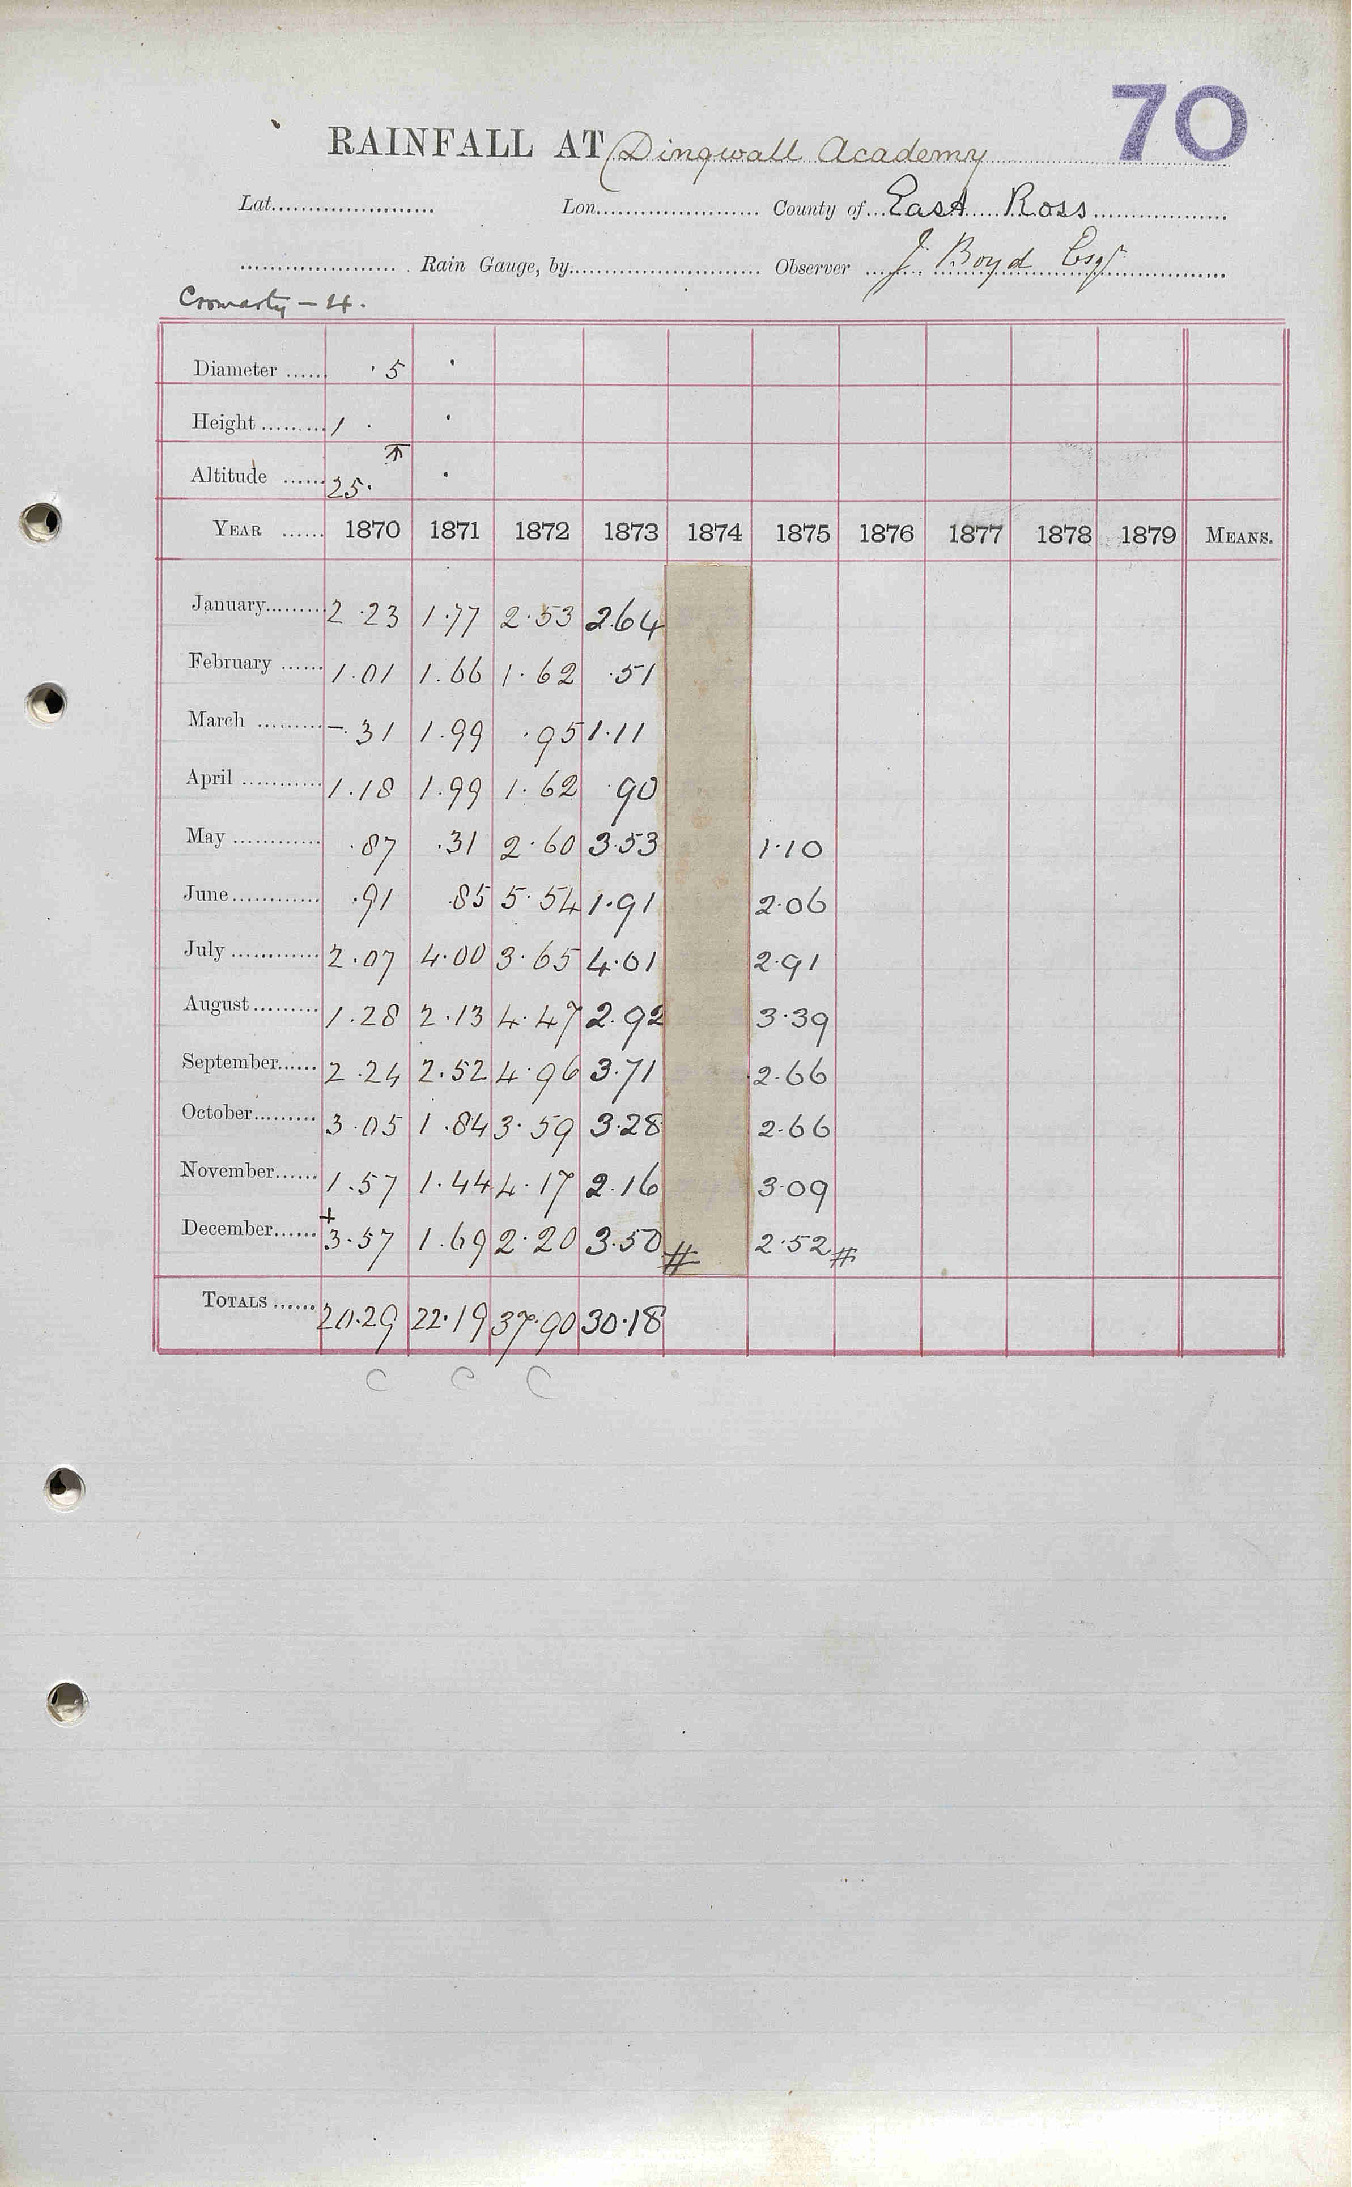 70
RAINFALL AT Dingwall Academy
Lat. Lon. County of East Ross
Rain Gauge, by Observer J. Boyd Esqr
Cromarty – 4.
Diameter · 5 ·
Height 1 · ·
Altitude 25· ·
YEAR 1870 1871 1872 1873 1874 1875 1876 1877 1878 1879 MEANS.
January 2.23 1.77 2.53 2.64
February 1.01 1.66 1.62 .51
March –.31 1.99 .95 1.11
April 1.18 1.99 1.62 .90
May .87 .31 2.60 3.53 1.10
June .91 .85 5.54 1.91 2.06
July 2.07 4.00 3.65 4.01 2.91
August 1.28 2.13 4.47 2.92 3.39
September 2.24 2.52 4.96 3.71 2.66
October 3.05 1.84 3.59 3.28 2.66
November 1.57 1.44 4.17 2.16 3.09
December + 3.57 1.69 2.20 3.50 # 2.52 #
TOTALS 20.29 22.19 37.90 30.18
C C C